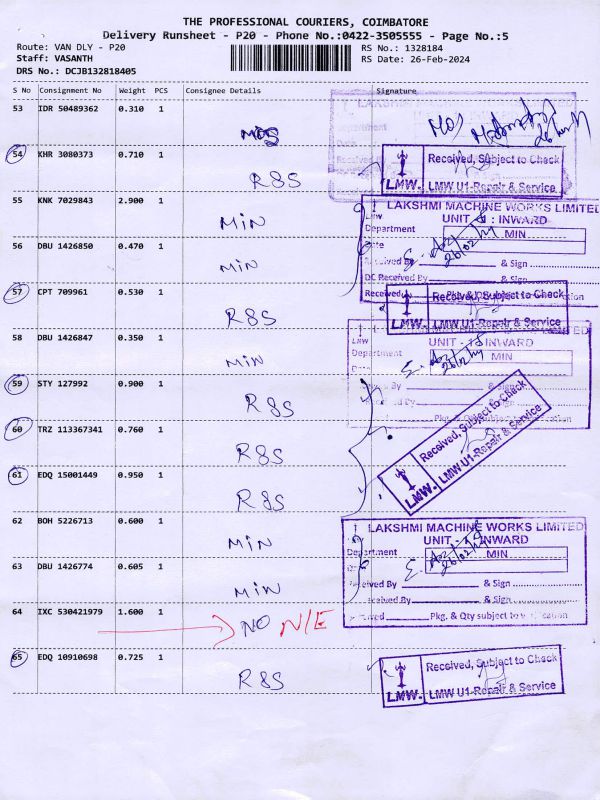 THE PROFESSIONAL COURIERS, COIMBATORE
Delivery Runsheet - P20 - Phone No.:0422-3505555 - Page No.:5
Route: VAN DLY - P20
RS No.: 1328184
Staff: VASANTH
RS Date: 26-Feb-2024
DRS No.: DCJB132818405
S No Consignment No Weight PCS Consignee Details Signature
53 IDR 50489362 0.310 1
MOS MOS
54 KHR 3080373 0.710 1
R&S
Received, Subject to Check
LMW. LMW U1-Repair & Service
55 KNK 7029843 2.900 1
MIN
LAKSHMI MACHINE WORKS LIMITED
UNIT : INWARD
Department MIN
56 DBU 1426850 0.470 1
MIN
Received By & Sign
DC Received By & Sign
57 CPT 709961 0.530 1
R&S
Received, Subject to Check
LMW. LMW U1-Repair & Service
58 DBU 1426847 0.350 1
MIN
UNIT - 1 INWARD
Department MIN
59 STY 127992 0.900 1
R&S
60 TRZ 113367341 0.760 1
R&S
Received, Subject to Check
LMW. LMW U1-Repair & Service
61 EDQ 15001449 0.950 1
R&S
62 BOH 5226713 0.600 1
MIN
LAKSHMI MACHINE WORKS LIMITED
UNIT - INWARD
Department MIN
63 DBU 1426774 0.605 1
MIN
Received By & Sign
Received By & Sign
64 IXC 530421979 1.600 1
NO N/E
Pkg. & Qty subject to verification
65 EDQ 10910698 0.725 1
R&S
Received, Subject to Check
LMW. LMW U1-Repair & Service